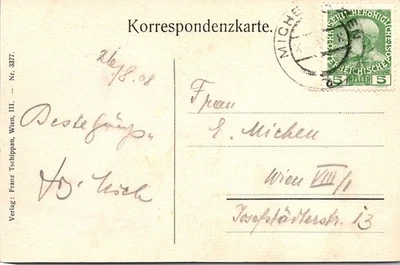 Korrespondenzkarte.
Verlag: Franz Tschippan, Wien, III. — Nr. 3377.
26/8.08
Beste Grüße
MICHE
5 HELLER 5
Frau
E. Michen
Wien VIII/1
Josefstädterstr. 13